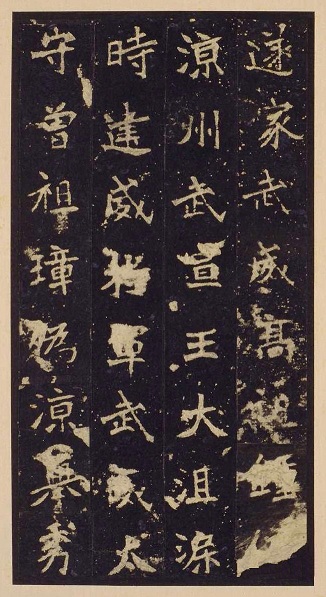 遂家武威髙祖鍾
涼州武宣王大沮渠
時建威將軍武威太
守曾祖璋偽涼舉秀